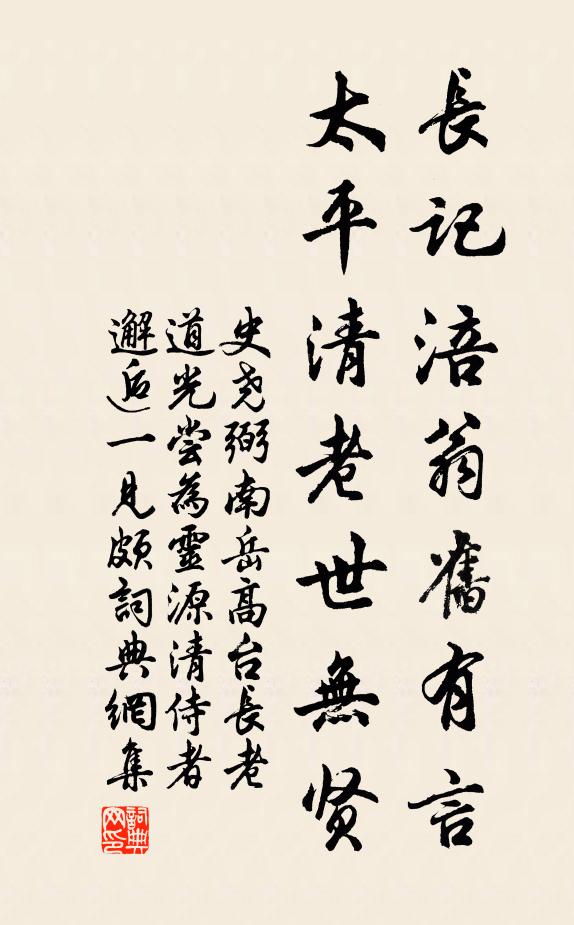 長記涪翁舊有言
太平清老世無贤
史尧弼南岳高台長老
道光尝為靈源清侍者
邂逅一見頗詞典網集
詞典网印